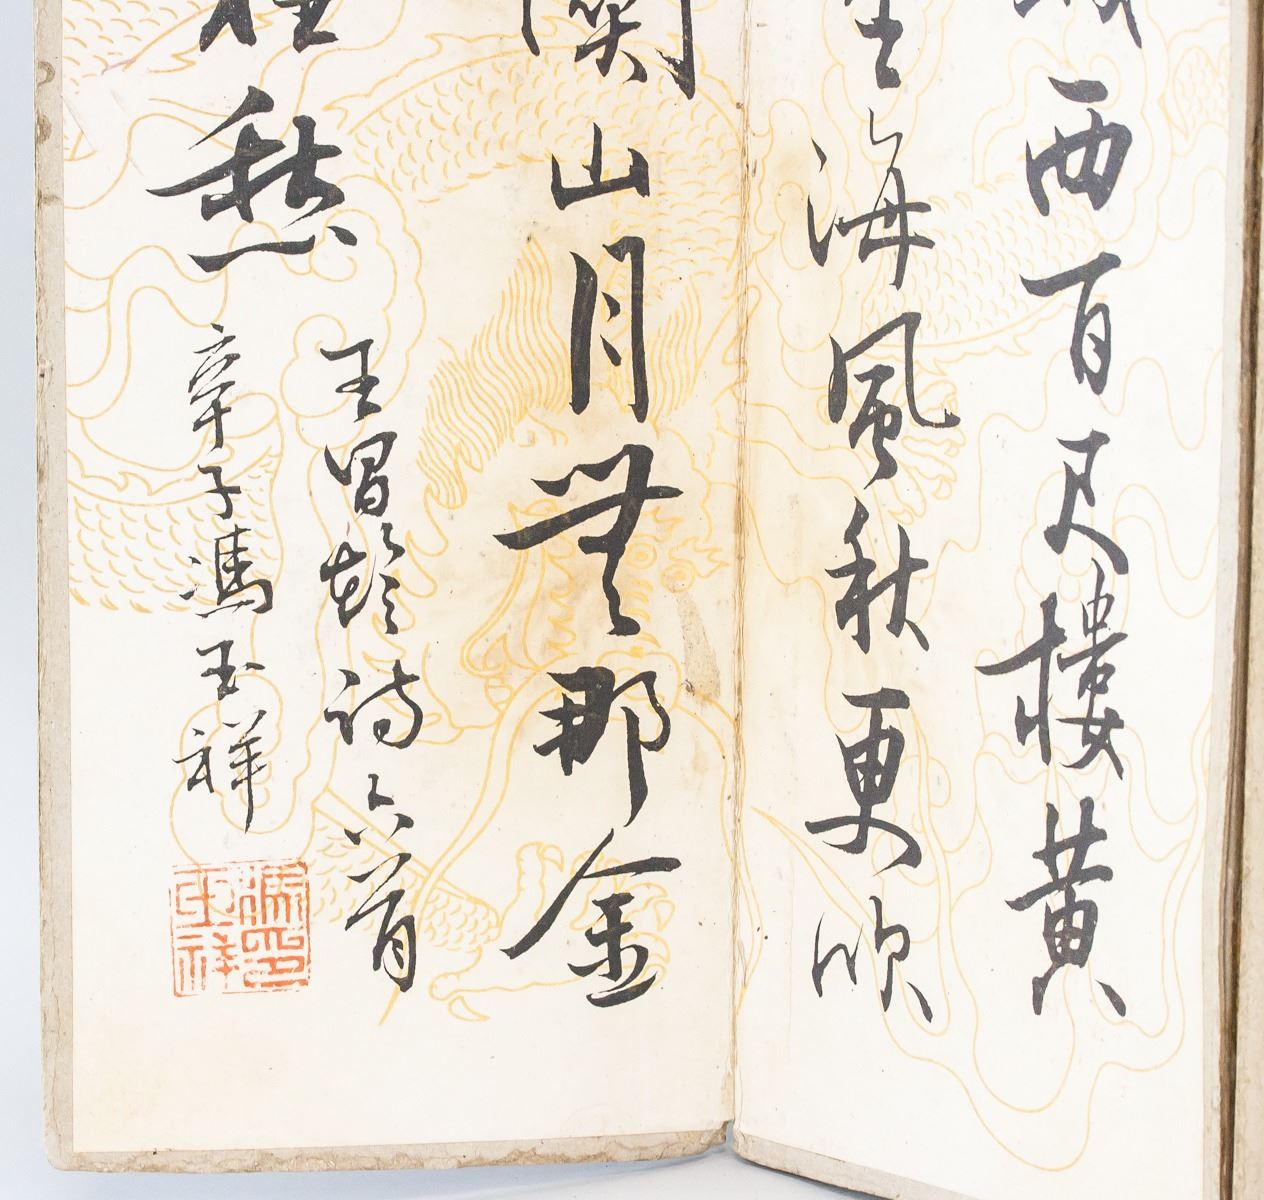 城西百尺樓黃
坐海風秋更吹
關山月無那金
愁
王昌齡詩六首
辛子馮玉祥
馮玉祥印